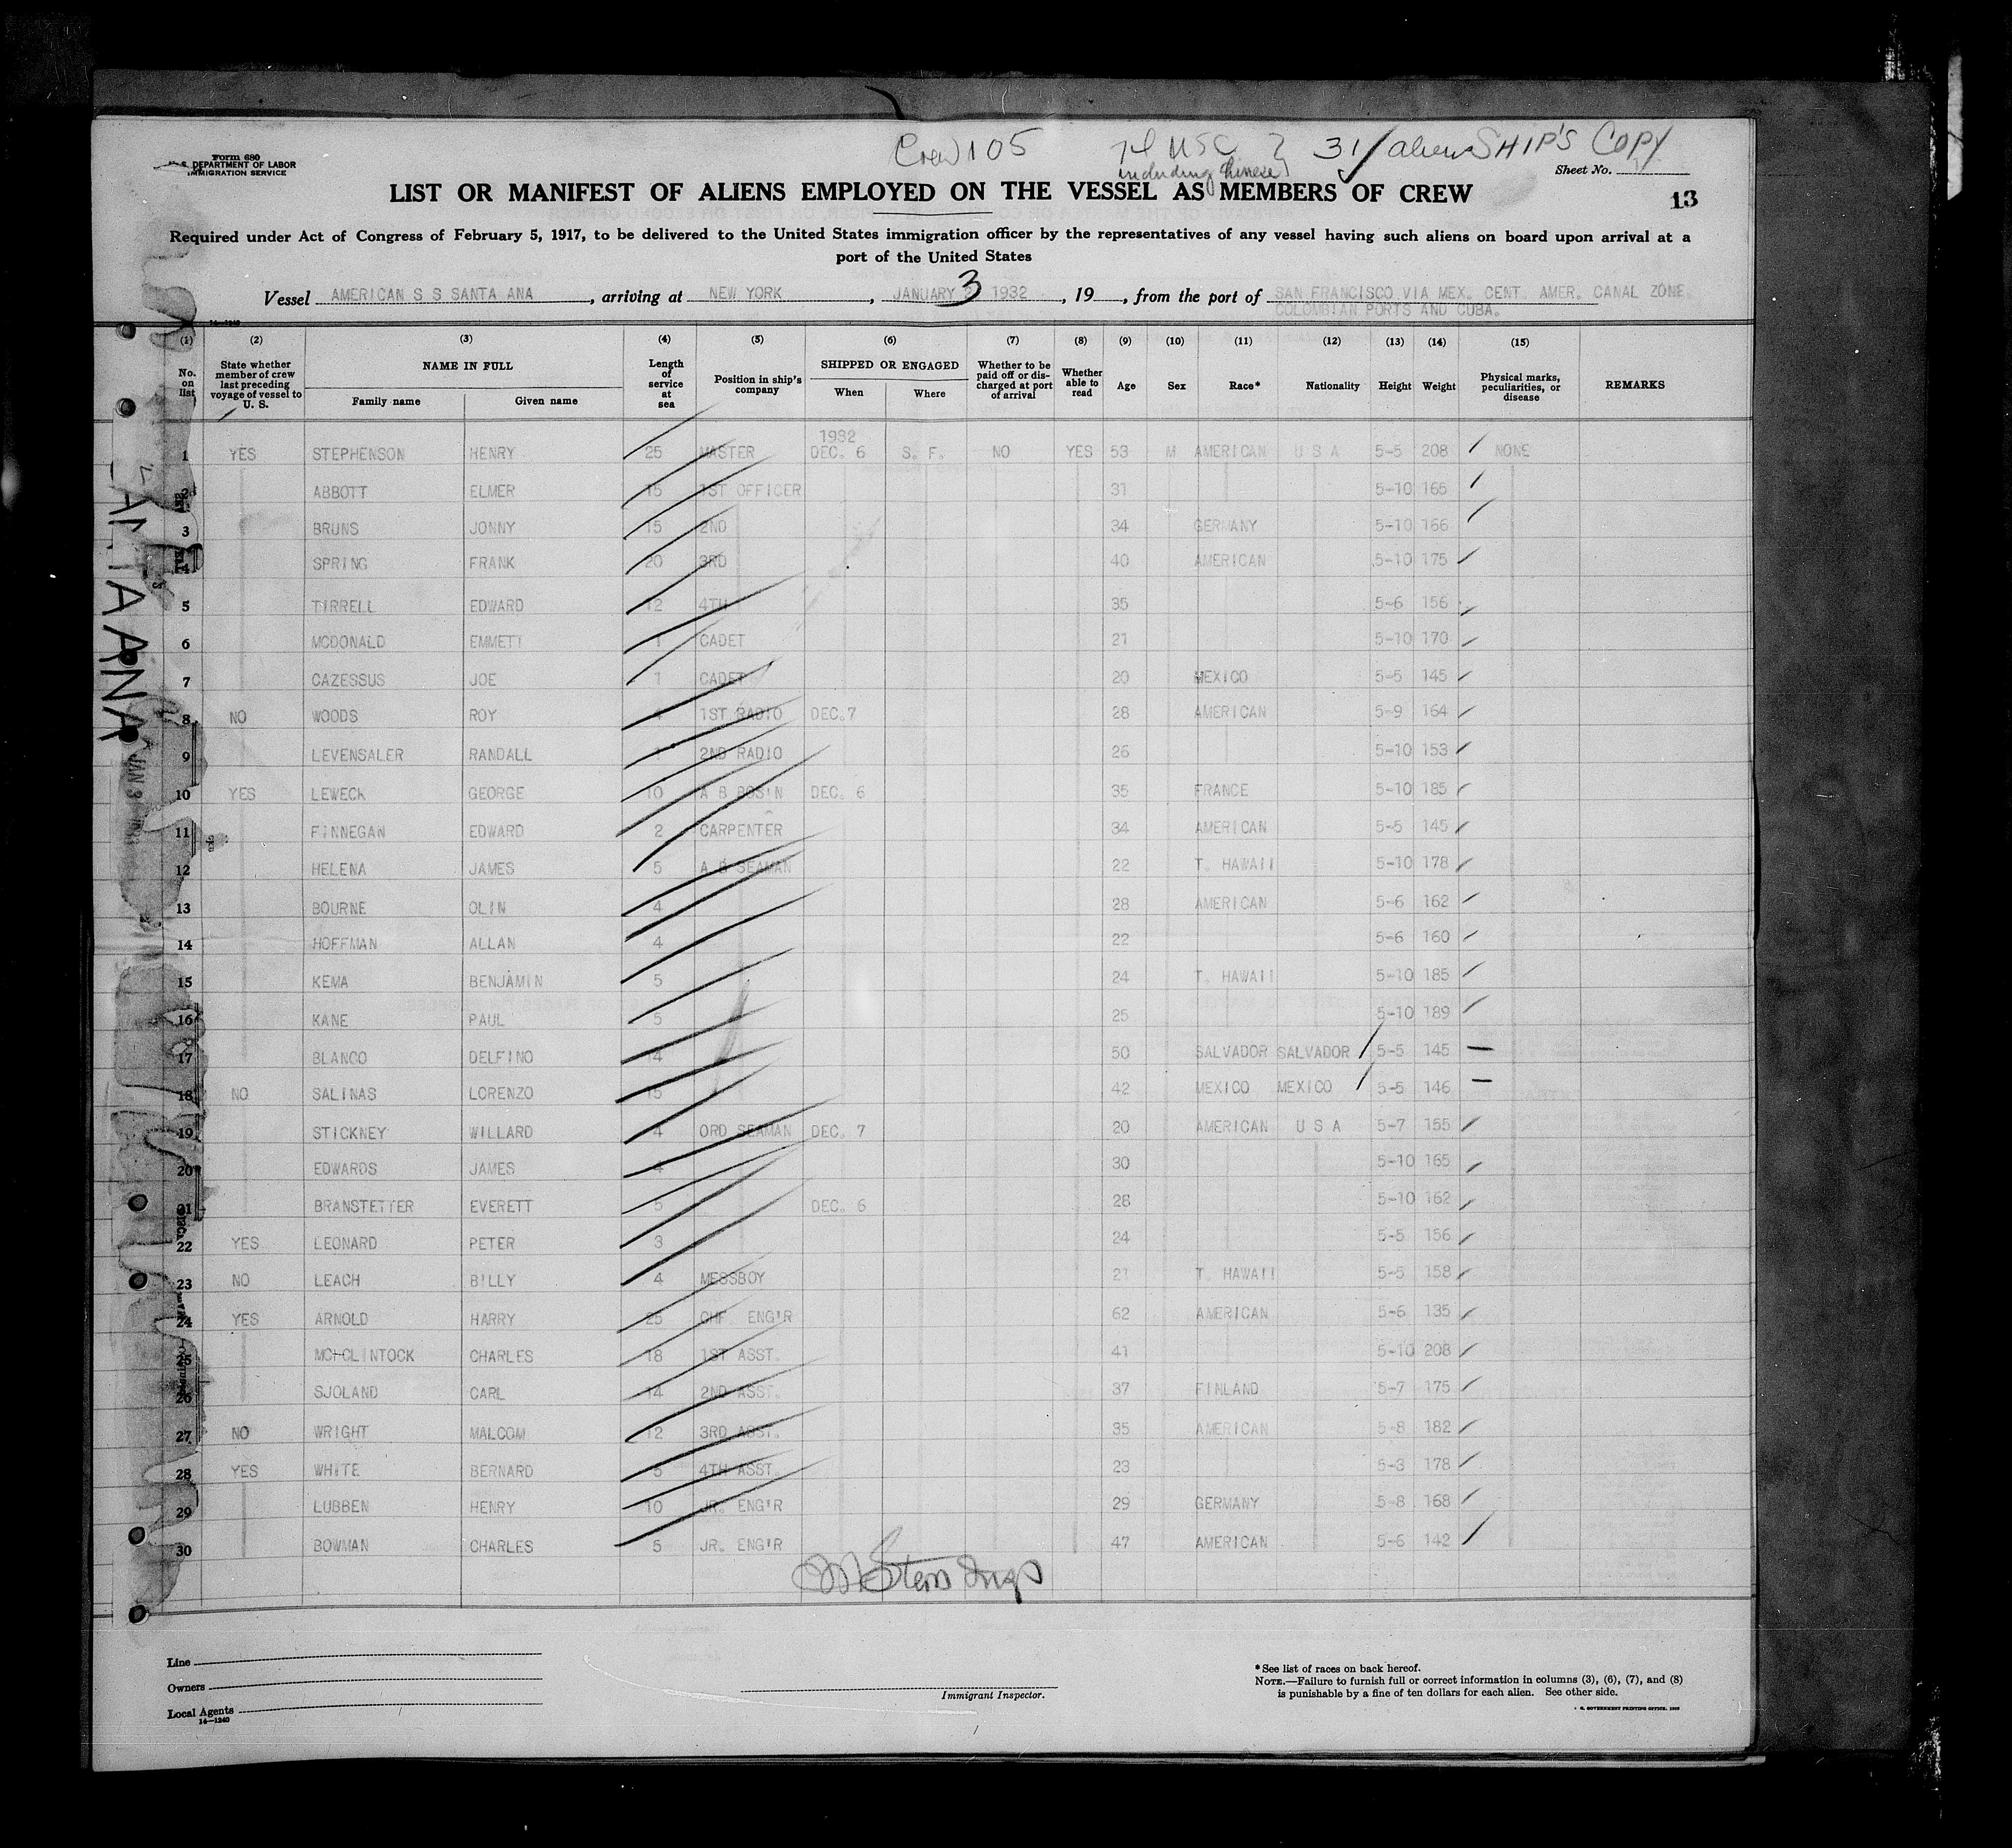 Crew 105 74 USC 31 aliens SHIP'S COPY
including Chinese
Form 680
U. S. DEPARTMENT OF LABOR
IMMIGRATION SERVICE
Sheet No.
13
LIST OR MANIFEST OF ALIENS EMPLOYED ON THE VESSEL AS MEMBERS OF CREW
Required under Act of Congress of February 5, 1917, to be delivered to the United States immigration officer by the representatives of any vessel having such aliens on board upon arrival at a
port of the United States
Vessel AMERICAN S S SANTA ANA, arriving at NEW YORK, JANUARY 3 1932, 19, from the port of SAN FRANCISCO VIA MEX. CENT. AMER. CANAL ZONE
COLOMBIAN PORTS AND CUBA.
14-1240
(1) (2) (3) (4) (5) (6) (7) (8) (9) (10) (11) (12) (13) (14) (15)
No. on list State whether member of crew last preceding voyage of vessel to U. S. NAME IN FULL Family name Given name Length of service at sea Position in ship's company SHIPPED OR ENGAGED When Where Whether to be paid off or discharged at port of arrival Whether able to read Age Sex Race* Nationality Height Weight Physical marks, peculiarities, or disease REMARKS
1932
1 YES STEPHENSON HENRY 25 MASTER DEC. 6 S. F. NO YES 53 M AMERICAN U S A 5-5 208 NONE
2 ABBOTT ELMER 15 1ST OFFICER 31 5-10 165
3 BRUNS JONNY 15 2ND 34 GERMANY 5-10 166
4 SPRING FRANK 20 3RD 40 AMERICAN 5-10 175
5 TIRRELL EDWARD 12 4TH 35 5-6 156
6 MCDONALD EMMETT 1 CADET 21 5-10 170
7 CAZESSUS JOE 1 CADET 20 MEXICO 5-5 145
8 NO WOODS ROY 4 1ST RADIO DEC.7 28 AMERICAN 5-9 164
9 LEVENSALER RANDALL 1 2ND RADIO 26 5-10 153
10 YES LEWECK GEORGE 10 A B BOS'N DEC. 6 35 FRANCE 5-10 185
11 FINNEGAN EDWARD 2 CARPENTER 34 AMERICAN 5-5 145
12 HELENA JAMES 5 A B SEAMAN 22 T. HAWAII 5-10 178
13 BOURNE OLIN 4 28 AMERICAN 5-6 162
14 HOFFMAN ALLAN 4 22 5-6 160
15 KEMA BENJAMIN 5 24 T. HAWAII 5-10 185
16 KANE PAUL 5 25 5-10 189
17 BLANCO DELFINO 14 50 SALVADOR SALVADOR 5-5 145
18 NO SALINAS LORENZO 15 42 MEXICO MEXICO 5-5 146
19 STICKNEY WILLARD 4 ORD SEAMAN DEC. 7 20 AMERICAN U S A 5-7 155
20 EDWARDS JAMES 4 30 5-10 165
21 BRANSTETTER EVERETT 5 DEC. 6 28 5-10 162
22 YES LEONARD PETER 3 24 5-5 156
23 NO LEACH BILLY 4 MESSBOY 21 T. HAWAII 5-5 158
24 YES ARNOLD HARRY 25 CHF. ENG'R 62 AMERICAN 5-6 135
25 MC-CLINTOCK CHARLES 18 1ST ASST. 41 5-10 208
26 SJOLAND CARL 14 2ND ASST. 37 FINLAND 5-7 175
27 NO WRIGHT MALCOM 12 3RD ASST. 35 AMERICAN 5-8 182
28 YES WHITE BERNARD 5 4TH ASST. 23 5-3 178
29 LUBBEN HENRY 10 JR. ENG'R 29 GERMANY 5-8 168
30 BOWMAN CHARLES 5 JR. ENG'R 47 AMERICAN 5-6 142
SANTA ANA
JAN 3
Line
Owners
Local Agents
14-1240
Immigrant Inspector.
*See list of races on back hereof.
NOTE.—Failure to furnish full or correct information in columns (3), (6), (7), and (8)
is punishable by a fine of ten dollars for each alien. See other side.
GOVERNMENT PRINTING OFFICE